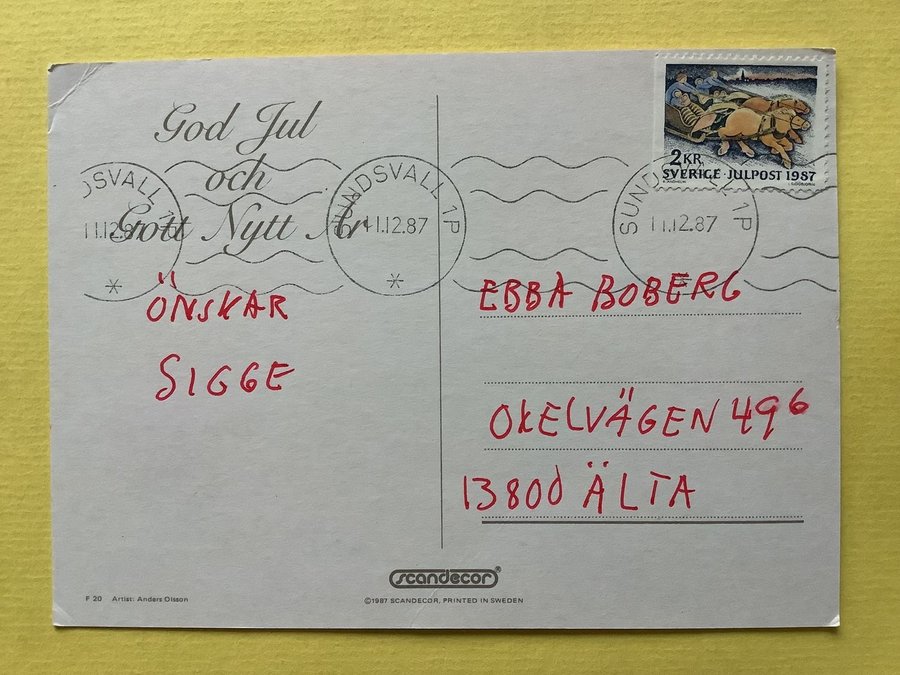 God Jul
och
Gott Nytt År
ÖNSKAR
SIGGE
2 KR
SVERIGE · JULPOST 1987
DSVALL 1P
11.12.87
SUNDSVALL 1P
11.12.87
SUNDSVALL 1P
11.12.87
EBBA BOBERG
OKELVÄGEN 496
13800 ÄLTA
scandecor®
F 20 Artist: Anders Olsson
©1987 SCANDECOR, PRINTED IN SWEDEN